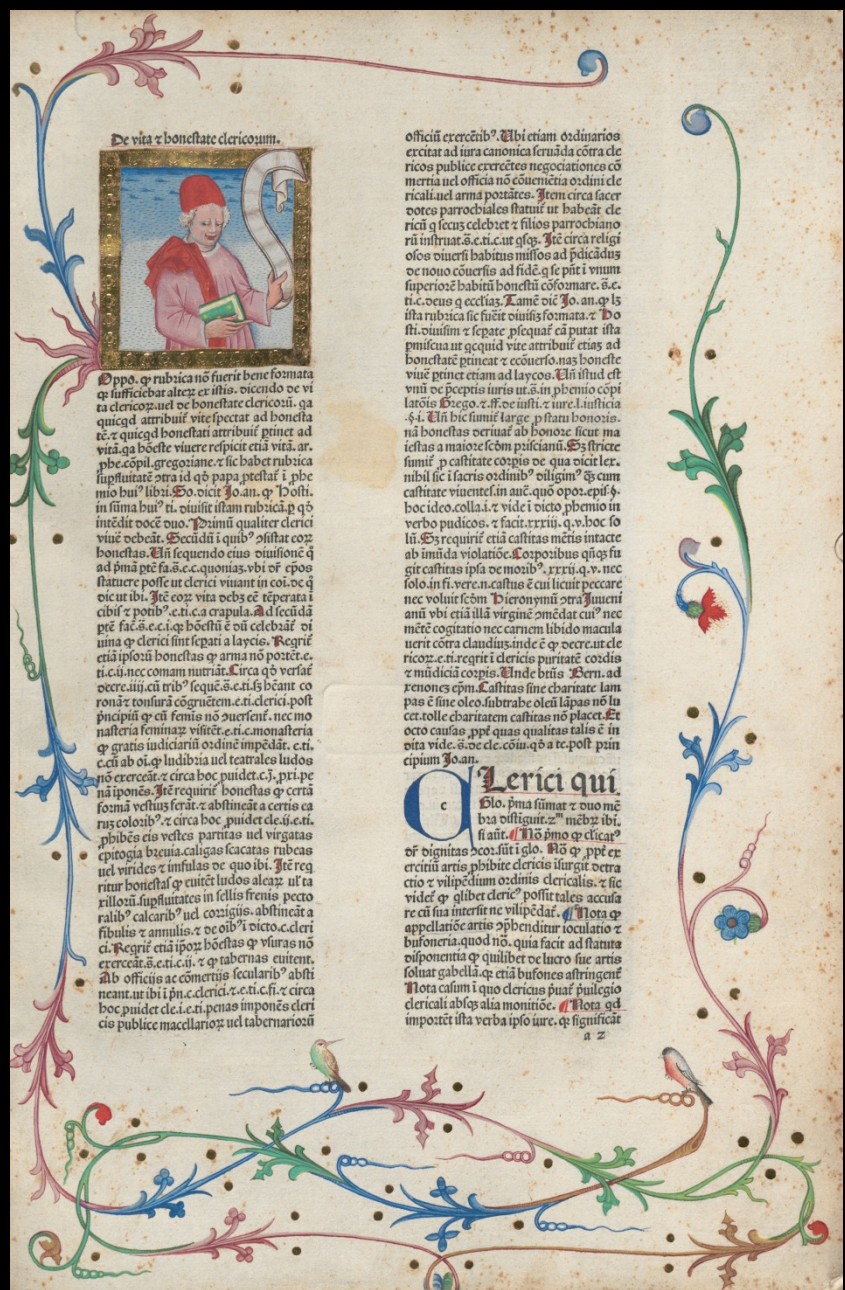 De vita ⁊ honestate clericorum.
Oppo. ꝙ rubrica nō fuerit bene formata
qꝛ sufficiebat alteꝝ ex istis. dicendo de vi
ta clericoꝝ. uel de honestate clericorū. qa
quicqd attribuit᷑ vite spectat ad honesta
tē. ⁊ quicqd honestati attribuit᷑ ꝑtinet ad
vitā. qa hōeste vivere respicit etiā vitā. ar.
ꝓhe. cōpil. gregoriane. ⁊ sic habet rubrica
suꝑfluitatē ↄtra id qō papa ꝓtestat᷑ ī ꝓhe
mio huiꝰ libri. So. dicit Jo. an. ꝙ Hosti.
in sūma huiꝰ ti. diuisit istam rubricā. ꝑ qō
intēdit docē duo. Primū qualiter clerici
viuē debeāt. Secūdū ī quibꝰ ↄsistat eoꝝ
honestas. Uñ sequendo eius diuisionē ꝙ
ad pͥmā ꝑtē fa. s̄. e. c. quoniaꝫ. vbi dr̄ ep̄os
statuere posse ut clerici viuant in cōi. de q̄
dic ut ibi. Itē eoꝝ vita debꝫ eē tēperata ī
cibis ⁊ potibꝰ. e. ti. c. a crapula. Ad secūdā
ꝑtē fac̄. s̄. e. c. i. qꝛ hōestū ē dū celebrāt᷑ di
uina ꝙ clerici sint seꝑati a laycis. Reqrit᷑
etiā ipsorū honestas ꝙ arma nō portēt. e.
ti. c. ij. nec comam nutriāt. Circa qō versat᷑
decre. iiij. cū tribꝰ sequē. s̄. e. ti. sꝫ hēant co
ronā ⁊ tonsurā cōgruētem. e. ti. clerici. post
pͥncipiū ꝙ cū femis nō ↄuersent᷑. nec mo
nasteria feminaꝝ visitēt. e. ti. c. monasteria
ꝙ gratis iudiciariū ordinē impēdāt. e. ti.
c. cū ab oī. ꝙ ludibria uel teatrales ludos
nō exerceāt. ⁊ circa hoc ꝓuidet c. j. ꝓxi. pe
nā iponēs. Itē requirit᷑ honestas ꝙ certā
formā vestiuꝫ ferāt. ⁊ abstineāt a certis ca
ruꝫ coloribꝰ. ⁊ circa hoc ꝓuidet cle. ij. e. ti.
ꝓhibēs eis vestes partitas uel virgatas
epitogia breuia. caligas scacatas rubeas
uel virides ⁊ infulas de quo ibi. Itē req
ritur honestas ꝙ euitēt ludos aleaꝝ ul᷑ ta
xillorū. suꝑfluitates in sellis frenis pecto
ralibꝰ calcaribꝰ uel corrigijs. abstineāt a
fibulis ⁊ annulis. ⁊ de oībꝰ ī dicto. c. cleri
ci. Reqrit᷑ etiā ip̄oꝝ hōestas ꝙ vsuras nō
exerceāt. s̄. e. ti. c. ij. ⁊ ꝙ tabernas euitent.
Ab officijs ac cōmertijs secularibꝰ absti
neant. ut ibi ī pͥn. c. clerici. ⁊ e. ti. c. fi. ⁊ circa
hoc ꝓuidet cle. i. e. ti. penas imponēs cleri
cis publice macellarioꝝ uel tabernariorū
officiū exercētibꝰ. Ubi etiam ordinarios
excitat ad iura canonica seruāda cōtra cle
ricos publice exercētes negociationes cō
mertia uel officia nō cōuenētia ordini cle
ricali. uel arma portātes. Item circa sacer
dotes parrochiales statuit᷑ ut habeāt cle
ricū q secuꝫ celebret ⁊ filios parrochiano
rū instruat. s̄. e. ti. c. ut qsqꝫ. Itē circa religi
osos diuersi habitus missos ad p̄dicādūꝫ
de nouo cōuersis ad fidē. q se pn̄t ī vnum
superiorē habitū honestū cōformare. s̄. e.
ti. c. deus q ecclīaꝫ. Tamē dic̄ Jo. an. ꝙ lꝫ
ista rubrica sic fuēit diuisiꝫ formata. ⁊ Ho
sti. diuisim ⁊ seꝑate ꝓsequat᷑ eā putat ista
ꝓmiscua ut qcquid vite attribuit᷑ etiaꝫ ad
honestatē ꝑtineat ⁊ ecōuerso. naꝫ honeste
viuē ꝑtinet etiam ad laycos. Uñ istud est
vnū de p̄ceptis iuris ut. s̄. in ꝓhemio cōpi
latōis Grego. ⁊. ff. de iusti. ⁊ iure. l. iusticia
.§. i. Uñ hic sumit᷑ large ꝓ statu honoris.
nā honestas deriuat᷑ ab honore sicut ma
iestas a maiore scōm priscianū. Sꝫ stricte
sumit᷑ ꝓ castitate corꝑis de qua dicit lex.
nihil sic ī sacris ordinibꝰ diligimꝰ qꝫ cum
castitate viuentes. in autē. quō opor. epis. §.
hoc ideo. colla. i. ⁊ vide ī dicto ꝓhemio in
verbo pudicos. ⁊ facit. xxxij. q. v. hoc so
lū. Sꝫ requirit᷑ etiā castitas mētis intacte
ab imūda violatiōe. Corporibus qn̄qꝫ fu
git castitas ipsa de moribꝰ. xxxij. q. v. nec
solo. in fi. vere. n. castus ē cui licuit peccare
nec voluit scōm Hieronymū ↄtra Juueni
anū vbi etiā illā virginē ↄmēdat cuiꝰ nec
mētē cogitatio nec carnem libido macula
uerit cōtra claudiuꝫ. inde ē ꝙ decre. ut cle
ricoꝝ. e. ti. reqrit ī clericis puritatē cordis
⁊ mūdiciā corꝑis. Unde btūs Bern. ad
xenonez ep̄m. Castitas sine charitate lam
pas ē sine oleo. subtrahe oleū lāpas nō lu
cet. tolle charitatem castitas nō placet. Et
octo causas ꝓpt᷑ quas qualitas talis ē in
dita vide. s̄. de cle. cōiu. qō a te. post prin
cipium Jo. an.
CLerici qui.
c
Glo. pͥma sūmat ⁊ duo mē
bra distīguit. zᵐ mēbꝝ ibi.
si aūt. ¶ Nō pͥmo ꝙ clicatꝰ
dr̄ dignitas ↄcor. sūt ī glo. Nō ꝙ ꝓpt᷑ ex
ercitiū artis ꝓhibite clericis īsurgit detra
ctio ⁊ vilipēdium ordinis clericalis. ⁊ sic
videt᷑ ꝙ qlibet clericꝰ possit tales accusa
re cū sua intersit ne vilipēdat᷑. ¶ Nota ꝙ
appellatiōe artis ↄp̄henditur ioculatio ⁊
bufoneria. quod nō. quia facit ad statuta
disponentia ꝙ quilibet de lucro sue artis
soluat gabellā. qꝛ etiā bufones astringent᷑
Nota casum ī quo clericus p͛uat᷑ p͛uilegio
clericali absqꝫ alia monitiōe. ¶ Nota qd
importēt ista verba ipso iure. qꝛ significāt
a 2